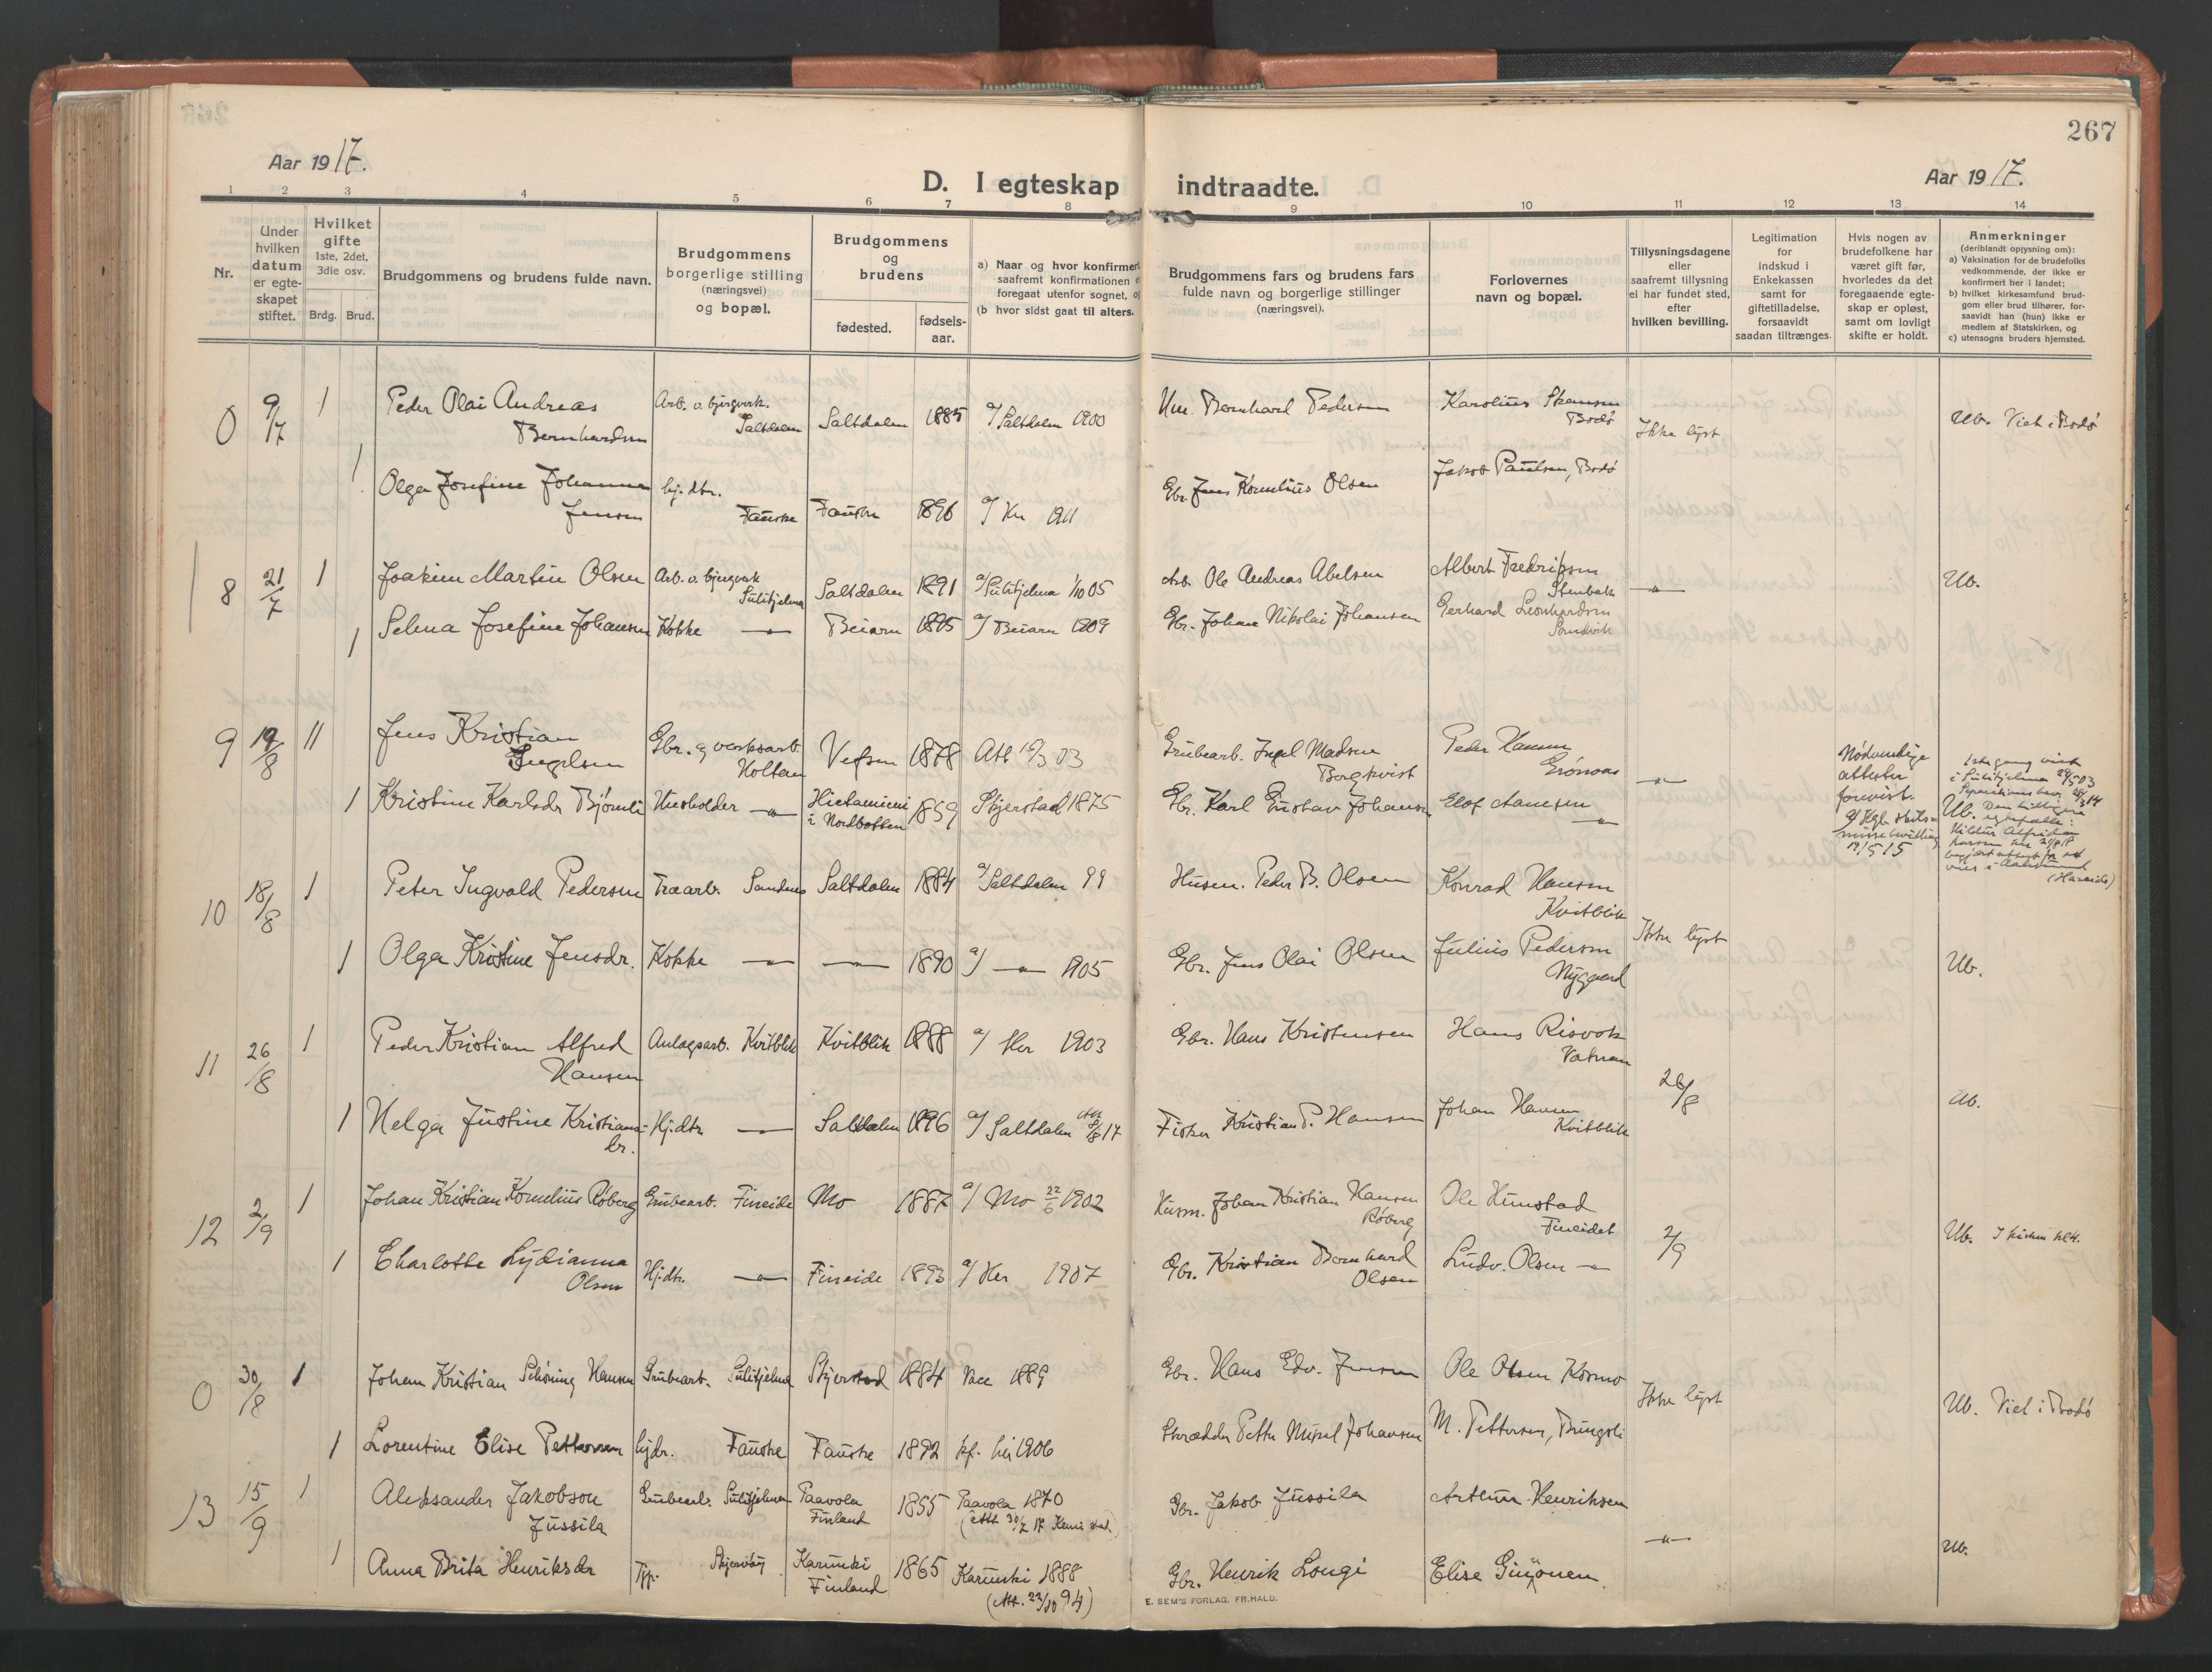 267
Aar 1917.
D. I egteskap indtraadte.
Aar 1917.
1 2 3 4 5 6 7 8 9 10 11 12 13 14
Nr.
Under hvilken datum er egte-skapet stiftet.
Hvilket gifte
1ste, 2det, 3die osv.
Brdg. Brud.
Brudgommens og brudens fulde navn.
Brudgommens borgerlige stilling (næringsvei) og bopæl.
Brudgommens og brudens
fødested.
fødsels-aar.
a) Naar og hvor konfirmert
saafremt konfirmationen
foregaat utenfor sognet,
(b hvor sidst gaat til alters.
Brudgommens fars og brudens fars
fulde navn og borgerlige stillinger
(næringsvei).
Forlovernes
navn og bopæl.
Tillysningsdagene
eller
saafremt tillysning
ei har fundet sted,
efter
hvilken bevilling.
Legitimation
for
indskud i
Enkekassen
samt for
giftetilladelse,
forsaavidt
saadan tiltrænges.
Hvis nogen av
brudefolkene har
været gift før,
hvorledes da det
foregaaende egte-
skap er opløst,
samt om lovligt
skifte er holdt.
Anmerkninger
(deriblandt opjysning om):
a) Vaksination for de brudefolks
vedkommende, der ikke er
konfirmert her i landet;
b) hvilket kirkesamfund brud-
gom eller brud tilhører, for-
saavidt han (hun) ikke er
medlem af Statskirken, og
c) utensogns bruders hjemsted.
0 9/7 1 Peder Olai Andreas Arb. v. bjergverk. Saltdalen Saltdalen 1885 a/ Saltdalen 1900 Bernhard Pedersen Karolius Bodø Ikke lyst Ub. Viet i Bodø
Bernhardsen
1 Olga Josefine Johanna hj.dtr. Fauske Fauske 1896 a/ Her 1911 Gbr. Jens Kornelius Olsen Jakob Paulsen, Bodø
Jensen
8 21/7 1 Joakim Martin Olsen Arb. v. bjergverk Sulitjelma Saltdalen 1891 a/ Sulitjelma 1/10 05 Arb. Ole Andreas Abelsen Albert Fredriksen Stenbak -"- Ub.
1 Selma Josefine Johansen Kokke -"- Beiarn 1895 a/ Beiarn 1909 Gbr. Johan Nikolai Johansen Gerhard Leonhardsen Sandvik
9 19/8 11 Jens Kristian Ingelsen Gbr. og verksarb. Holtan Vefsen 1878 Att 03 Grubearb. Ingel Madsen Borgkvist Peder Hansen -"- Nødvendige attester forevist.
1 Kristine Karlsdr Bjørnli Husholder -"- Hietamiemi i Nordbotten 1859 Skjerstad 1875 Gbr. Karl Gustav Johansen Elof Hansen -"-
10 18/8 1 Peter Ingvald Pedersen Træarb. Sandnes Saltdalen 1884 a/ Saltdalen 99 Husm. Peder B. Olsen Konrad Hansen Kvitblik Ikke lyst
1 Olga Kristine Jensdr. Kokke -"- -"- 1890 a/ -"- 1905 Gbr. Jens Olai Olsen Julius Pedersen Nygaard Ub.
11 26/8 1 Peder Kristian Alfred Hansen Anlægsarb. Kvitblik Kvitblik 1888 a/ Her 1903 Gbr. Hans Kristensen Hans Risvok Vatnan 26/8 Ub.
1 Helga Justine Kristians-dr. Hj.dtr. -"- Saltdalen 1896 a/ Saltdalen Fisker Kristian P. Hansen Johan Hansen Kvitblik
12 2/9 1 Johan Kristian Kornelius Røberg Grubearb. Fineide Mo 1887 a/ Mo 22/6 1902 Husm. Johan Kristian Hansen Røberg Ole Hunstad Fineidet 2/9 Ub. I kirken kl 4.
1 Charlotte Lydianna Olsen Hj.dtr. -"- Fineide 1893 a/ Her 1907 Gbr. Kristian Bernhard Olsen Ludv. Olsen -"-
0 30/8 1 Johan Kristian Schöning Hansen Grubearb. Sulitjelma Skjerstad 1884 Vacc 1889 Gbr. Hans Edv. Jensen Ole Olsen Kosmo Ikke lyst Ub. Viet i Bodø
1 Lorentine Elise Pettersen hjdr. Fauske Fauske 1892 kf. her 1906 Skrædder Petter Johansen M. Pettersen,
13 15/9 1 Aleksander Jakobson Jussila Grubearb. Sulitjelma Paavola Finland 1855 Paavola 1870 (Att 30/7 17 Kemi stad.) Gbr. Jakob Jussila Arthur Henriksen -"- Ub.
1 Anna Brita Henriksdr Tjp. Skjervøy Karunki Finland 1865 Karunki 1888 (Att. 23/10 94) Gbr. Henrik Longi Elise
E. SEM'S FORLAG, FR.HALD.